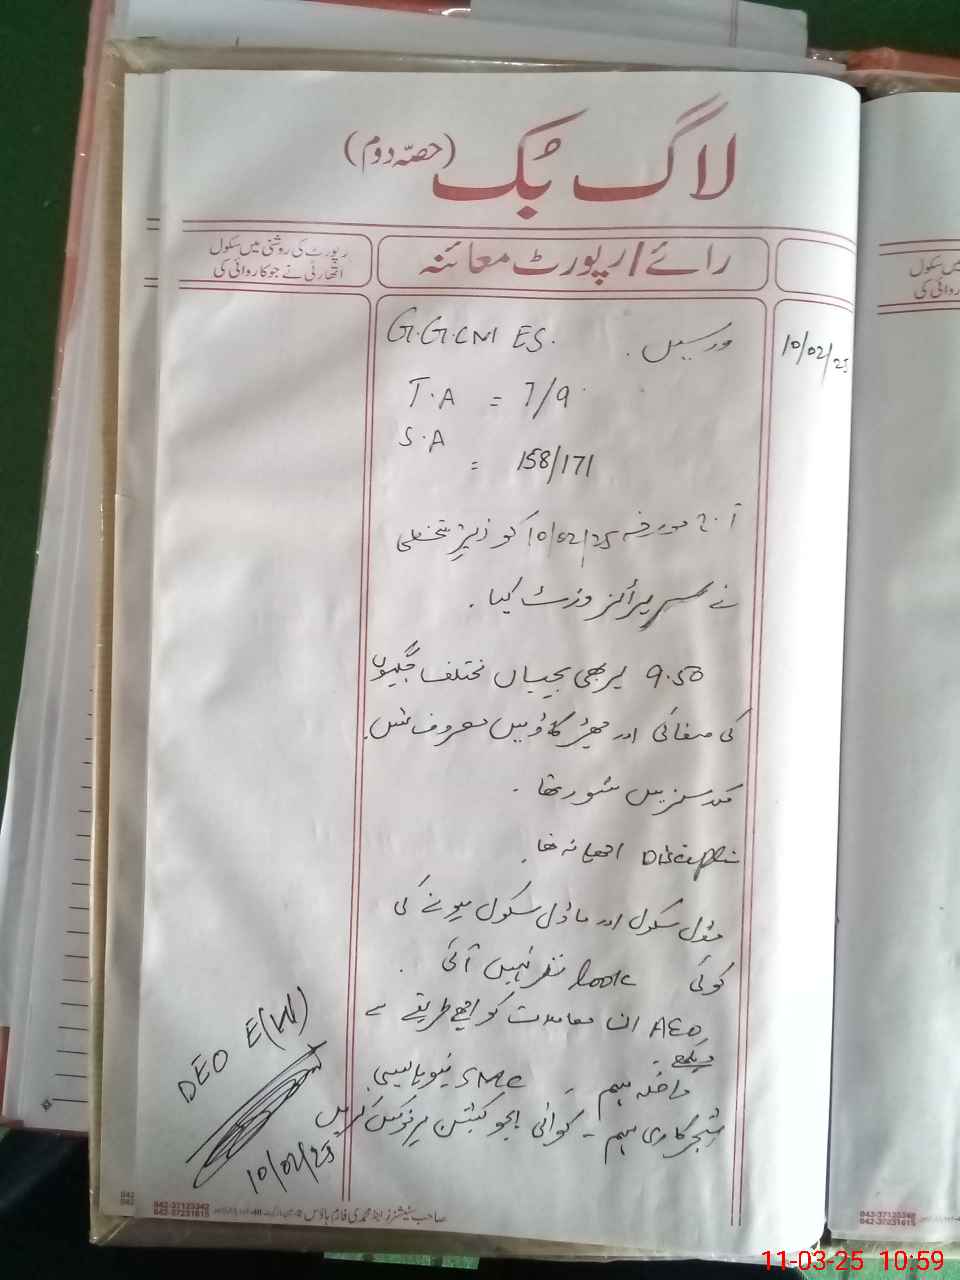 لاگ بُک (حصّہ دوم)
رائے/رپورٹ معائنہ
رپورٹ کی روشنی میں سکول
اتھارٹی نے جو کاروائی کی
10/02/25
G.G.CM ES.
T.A = 7/9
S.A
= 158/171
آج مورخہ 10/02/25 کو زیر دستخطی
نے سرپرائز وزٹ کیا .
9.50 پر بھی بچیاں مختلف جگہوں
کی صفائی اور چھڑکاؤ میں مصروف تھیں.
میں شور تھا .
اچھا نہ تھا.
مڈل سکول اور ماڈل سکول ہونے کی
کوئی look نظر نہیں آئی .
AEO ان معاملات کو اچھے طریقے سے
دیکھے .
داخلہ مہم - SMC نیو پالیسی
شجرکاری مہم - کوالٹی ایجوکیشن پر فوکس کریں
DEO E(W)
10/02/25
042-37123342
042-37231615
میں سکول
روائی کی
042-37123342
042-37231615
11-03-25 10:59